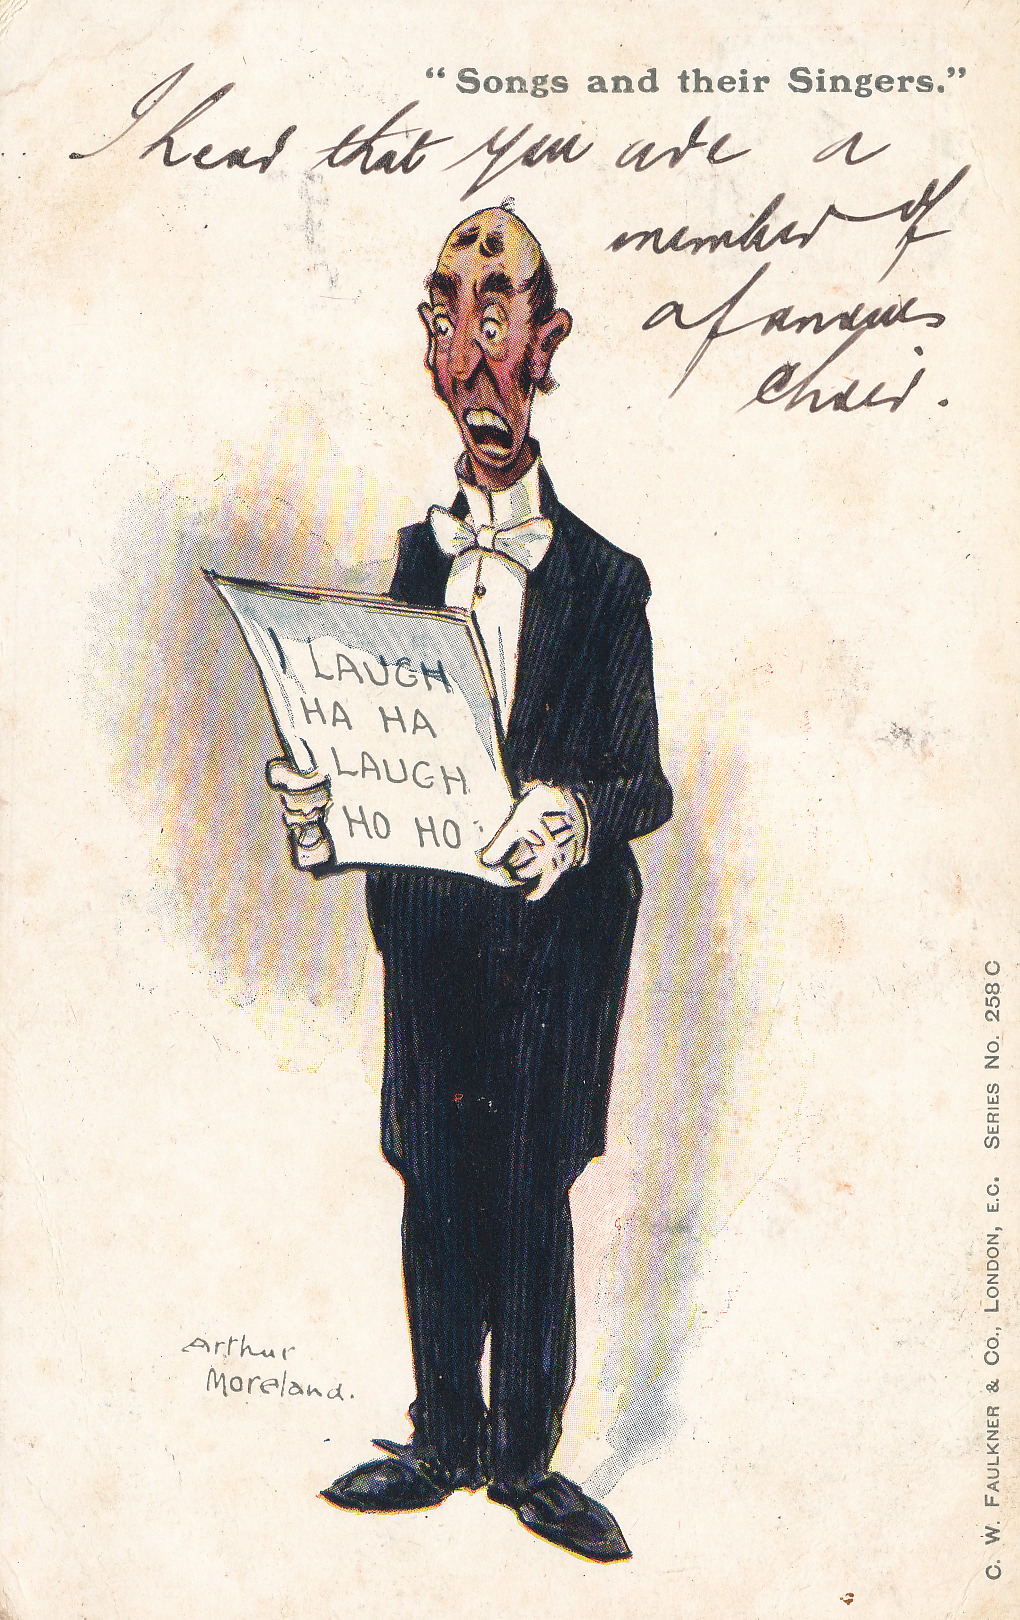 "Songs and their Singers."
I hear that you are a
member of
a famous
Choir.
I LAUGH
HA HA
I LAUGH
HO HO
Arthur
Moreland.
C. W. FAULKNER & CO., LONDON, E.C. SERIES NO. 258 C